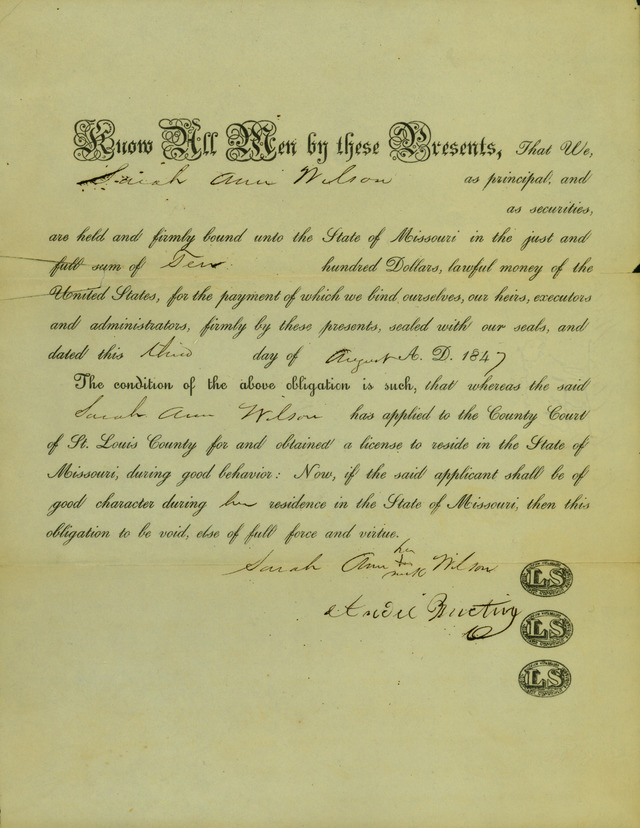 Know All Men by these Presents, That We,
Sarah Ann Wilson as principal, and
as securities,
are held and firmly bound unto the State of Missouri in the just and
full sum of Ten hundred Dollars, lawful money of the
United States, for the payment of which we bind ourselves, our heirs, executors
and administrators, firmly by these presents, sealed with our seals, and
dated this third day of August A. D. 1847
The condition of the above obligation is such, that whereas the said
Sarah Ann Wilson has applied to the County Court
of St. Louis County for and obtained a license to reside in the State of
Missouri, during good behavior: Now, if the said applicant shall be of
good character during her residence in the State of Missouri, then this
obligation to be void, else of full force and virtue.
her
Sarah Ann + Wilson
mark
LS
LS
LS